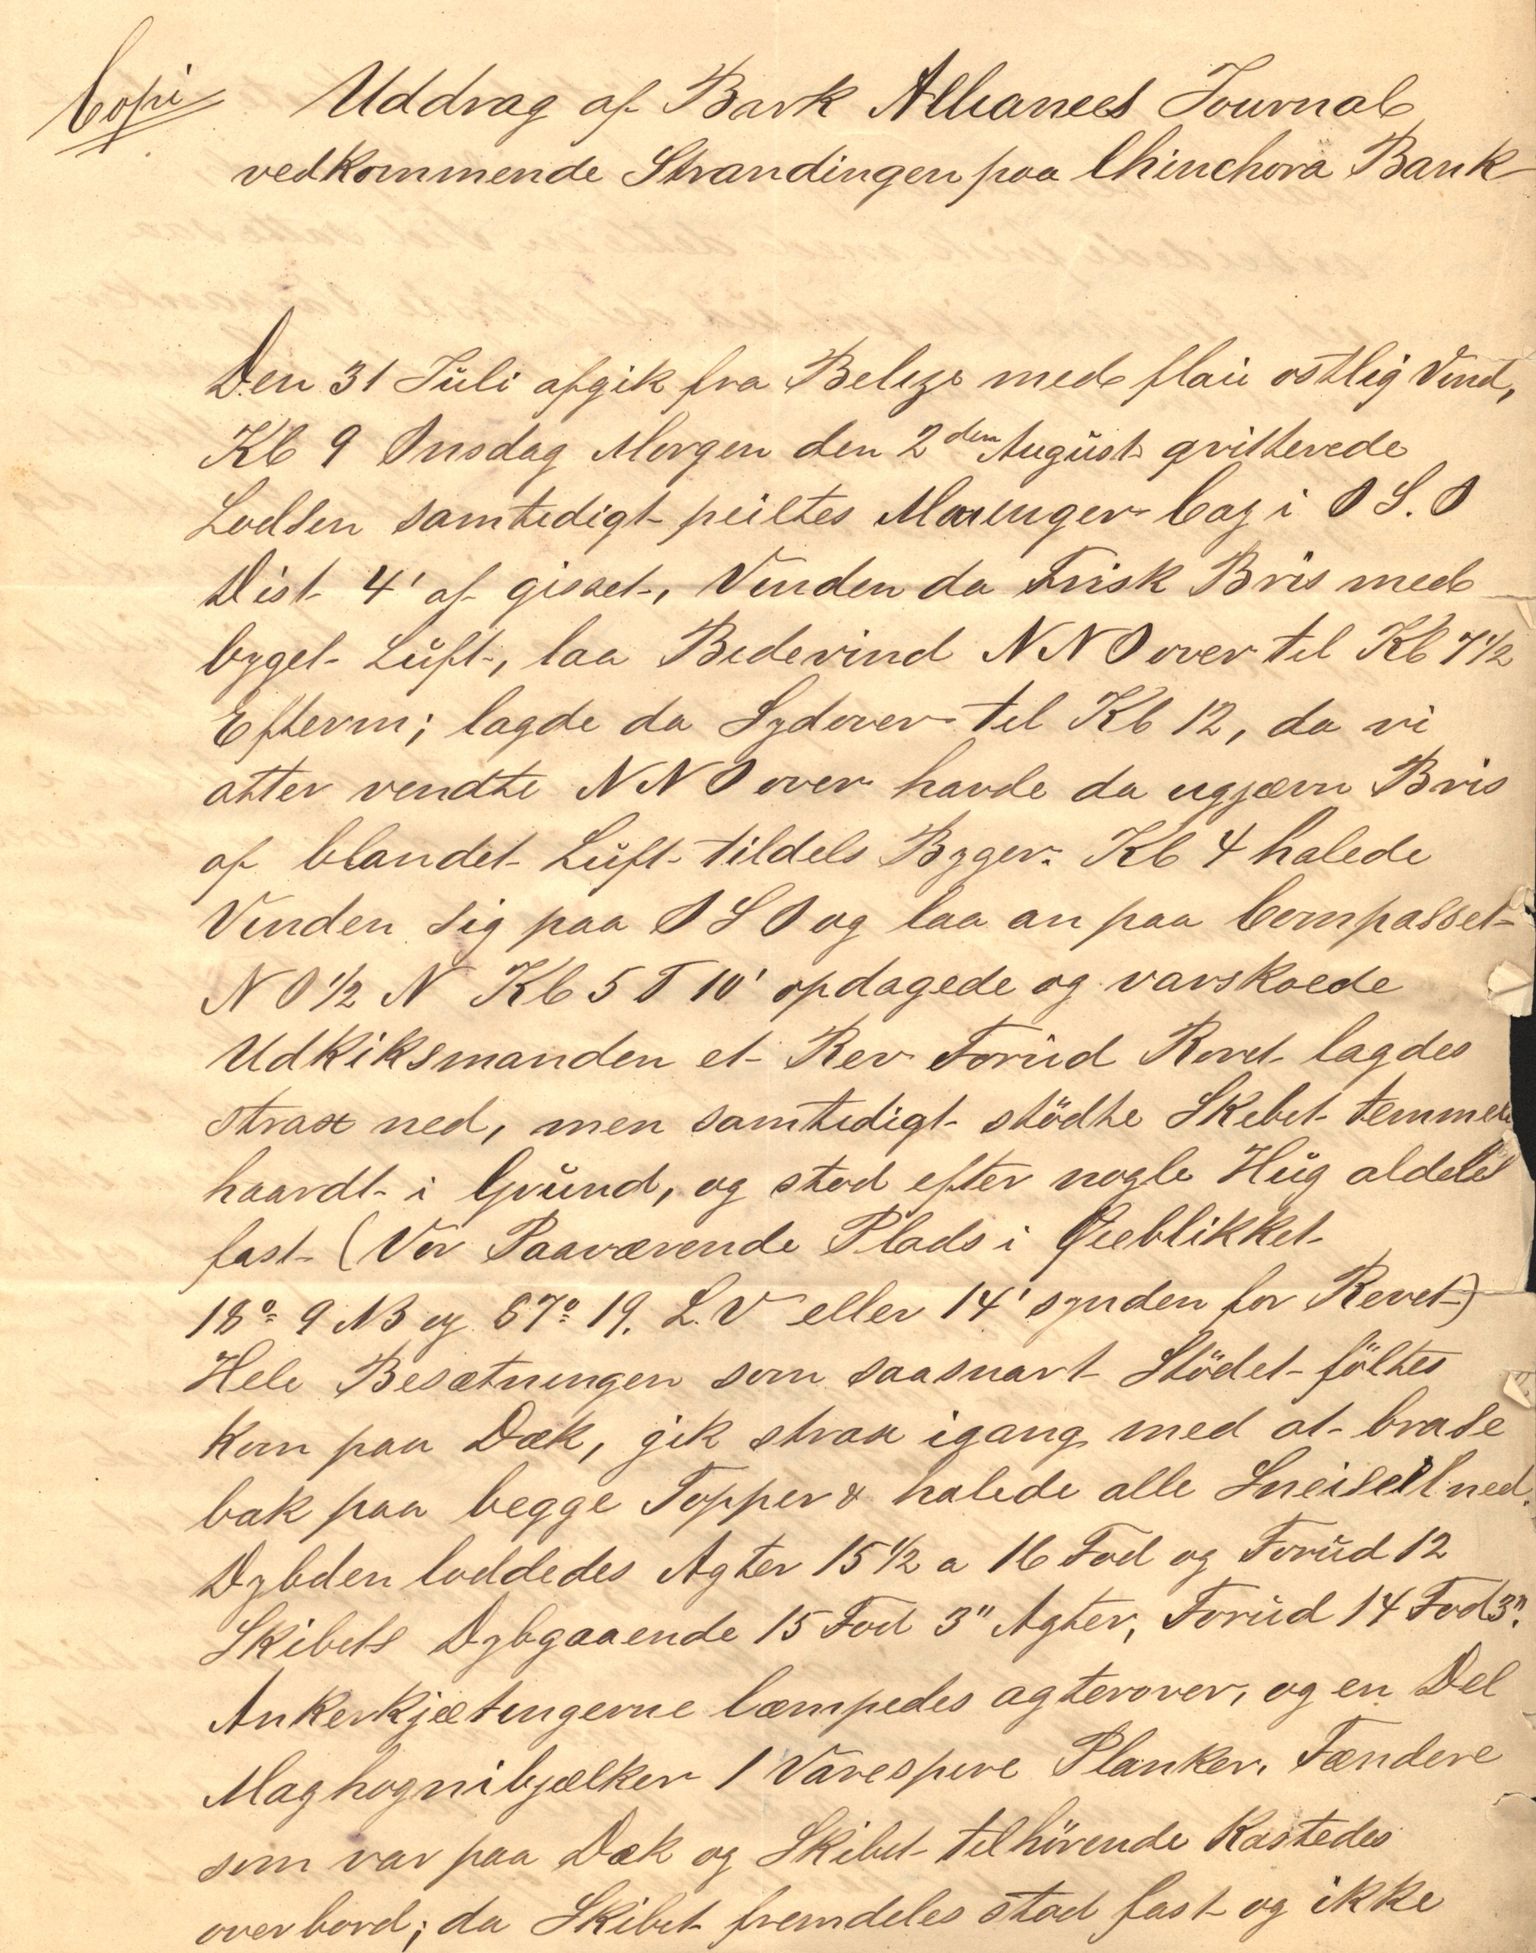 Copi Uddrag af Bark Alliances Journal
vedkommende Strandingen paa Chinchora Bank
Den 31 Juli afgik fra Belize med flau østlig Vind,
Kl 9 Onsdag Morgen den 2den August qvitterede
Lodsen samtidigt peiltes Mauenger Cay i O S. O
Dist 4' af gisset, Vinden da Frisk Bris med
byget Luft, laa Bidevind N N O over til Kl 7 1/2
Efterm; lagde da Sydover til Kl 12, da vi
atter vendte N N O over havde da ugjævn Bris
af blandet Luft tildels Byger. Kl 4 halede
Vinden sig paa O S O og laa an paa Compasset
N O 1/2 N Kl 5 T 10' opdagede og varskoede
Udkiksmanden et Rev Forud Roret lagdes
strax ned, men samtidigt stödte Skibet temmeli
haardt i Grund, og stod efter nogle Hug aldeles
fast (Vor Paaværende Plads i Øieblikket
18° 9 NB og 87° 19. L. V eller 14' synden for Revet)
Hele Besætningen som saasnart Stödetföltes
kom paa Dæk, gik strax igang med at brase
bak paa begge Topper & halede alle Sneiseil ned.
Dybden loddedes Agter 15 1/2 a 16 Fod og Forud 12
Skibets Dybgaaende 15 Fod 3" Agter, Forud 14 Fod 3".
Ankerkjætingerne læmpedes agterover, og en Del
Maghognibjælker 1 Varespire Planker. Fændere
som var paa Dæk og Skibet tilhörende Kastedes
overbord; da Skibet fremdeles stod fast og ikke